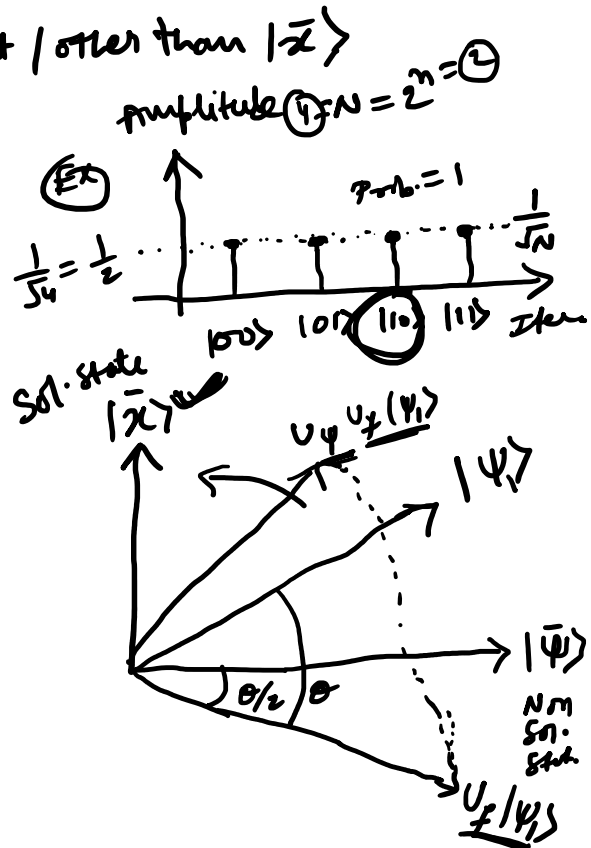 / other than |x̄⟩
Amplitude 4 = N = 2^n = 2
Ex
Prob. = 1
1/√4 = 1/2
1/√N
|00⟩ |01⟩ |10⟩ |11⟩
Sol. state
|x̄⟩
U_ψ U_f |ψ₁⟩
|ψ₁⟩
|ψ̄⟩
θ/2 θ
Non
Sol.
U_f |ψ₁⟩